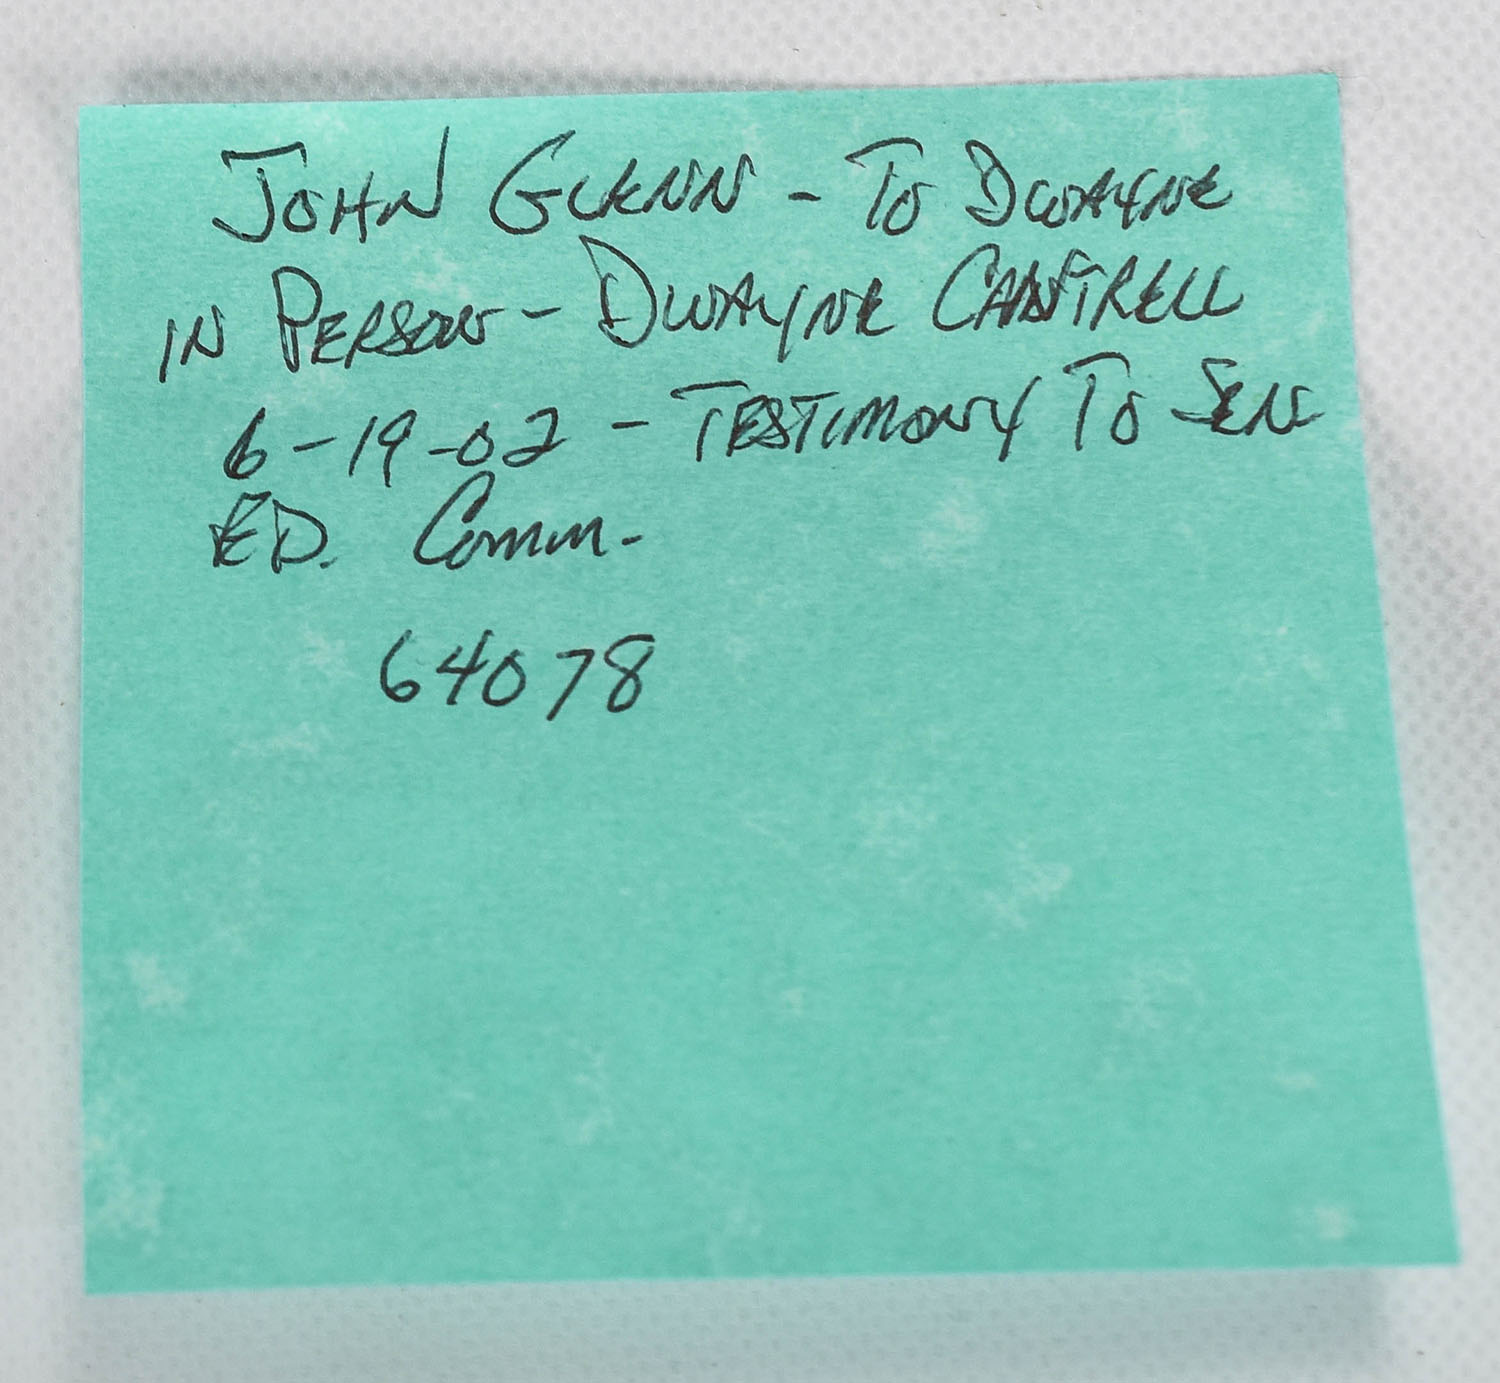 John Glenn - To Dwayne
in Person - Dwayne Cantrell
6-19-02 - Testimony To Sen
ED. Comm.
64078